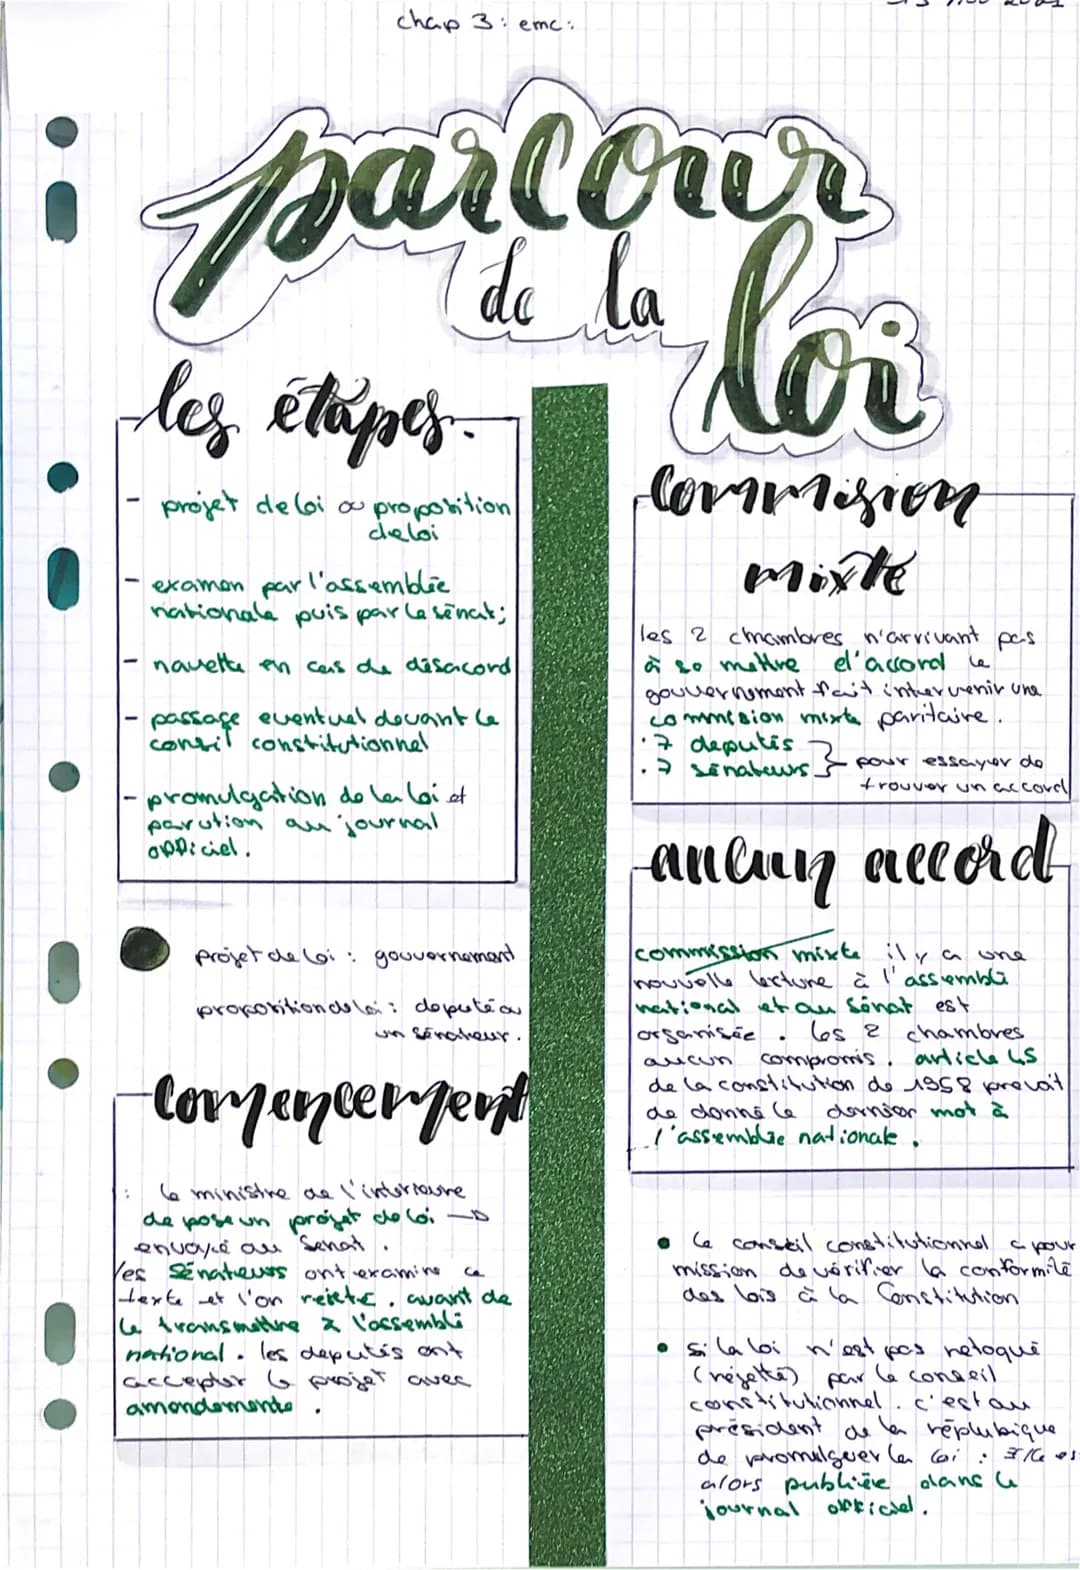 chap 3 : emc :
parcour
de la
loi
les étapes.
- projet de loi ou proposition
de loi
- examen par l'assemblée
nationale puis par le sénat ;
- navette en cas de désacord
- passage eventuel devant le
conseil constitutionnel
- promulgation de la loi et
parution au journal
officiel.
projet de loi : gouvernement
proposition de loi : deputé ou
un sénateur.
Comencement
: le ministre de l'interieure
de pose un projet de loi →
envoyé au Senat.
les Sénateurs ont examine ce
texte et l'on rejeté. avant de
le transmettre à l'assemblé
national. les deputés ont
accepter le projet avec
amendements.
Commision
mixte
les 2 chambres n'arrivant pas
à se mettre d'accord le
gouvernement fait intervenir une
commision mixte paritaire.
. 7 deputés
. 7 sénateurs } pour essayer de
trouver un accord
aucun accord
commission mixte il y a une
nouvelle lecture à l'assemblé
national et au Sénat est
organisée. les 2 chambres
aucun compromis. article 45
de la constitution de 1958 prevoit
de donné le dernier mot à
l'assemblée nationale.
• le conseil constitutionnel a pour
mission de vérifier la conformité
des lois à la Constitution
• si la loi n'est pas retoqué
(rejetté) par le conseil
constitutionnel. c'est au
président de la réplubique
de promulguer la loi : Elle es
alors publiée dans le
journal officiel.